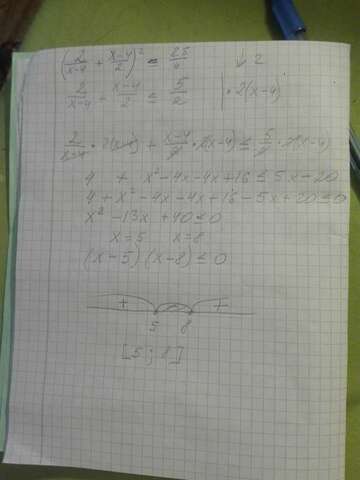 (2/(x-4) + (x-4)/2)² ≤ 25/4 ↓ 2
2/(x-4) + (x-4)/2 ≤ 5/2 | · 2(x-4)
2/(x-4) · 2(x-4) + (x-4)/2 · 2(x-4) ≤ 5/2 · 2(x-4)
4 + x² -4x -4x +16 ≤ 5x -20
4 + x² -4x -4x +16 -5x +20 ≤ 0
x² -13x +40 ≤ 0
x = 5 x = 8
(x-5)(x-8) ≤ 0
+ - +
5 8
[5; 8]